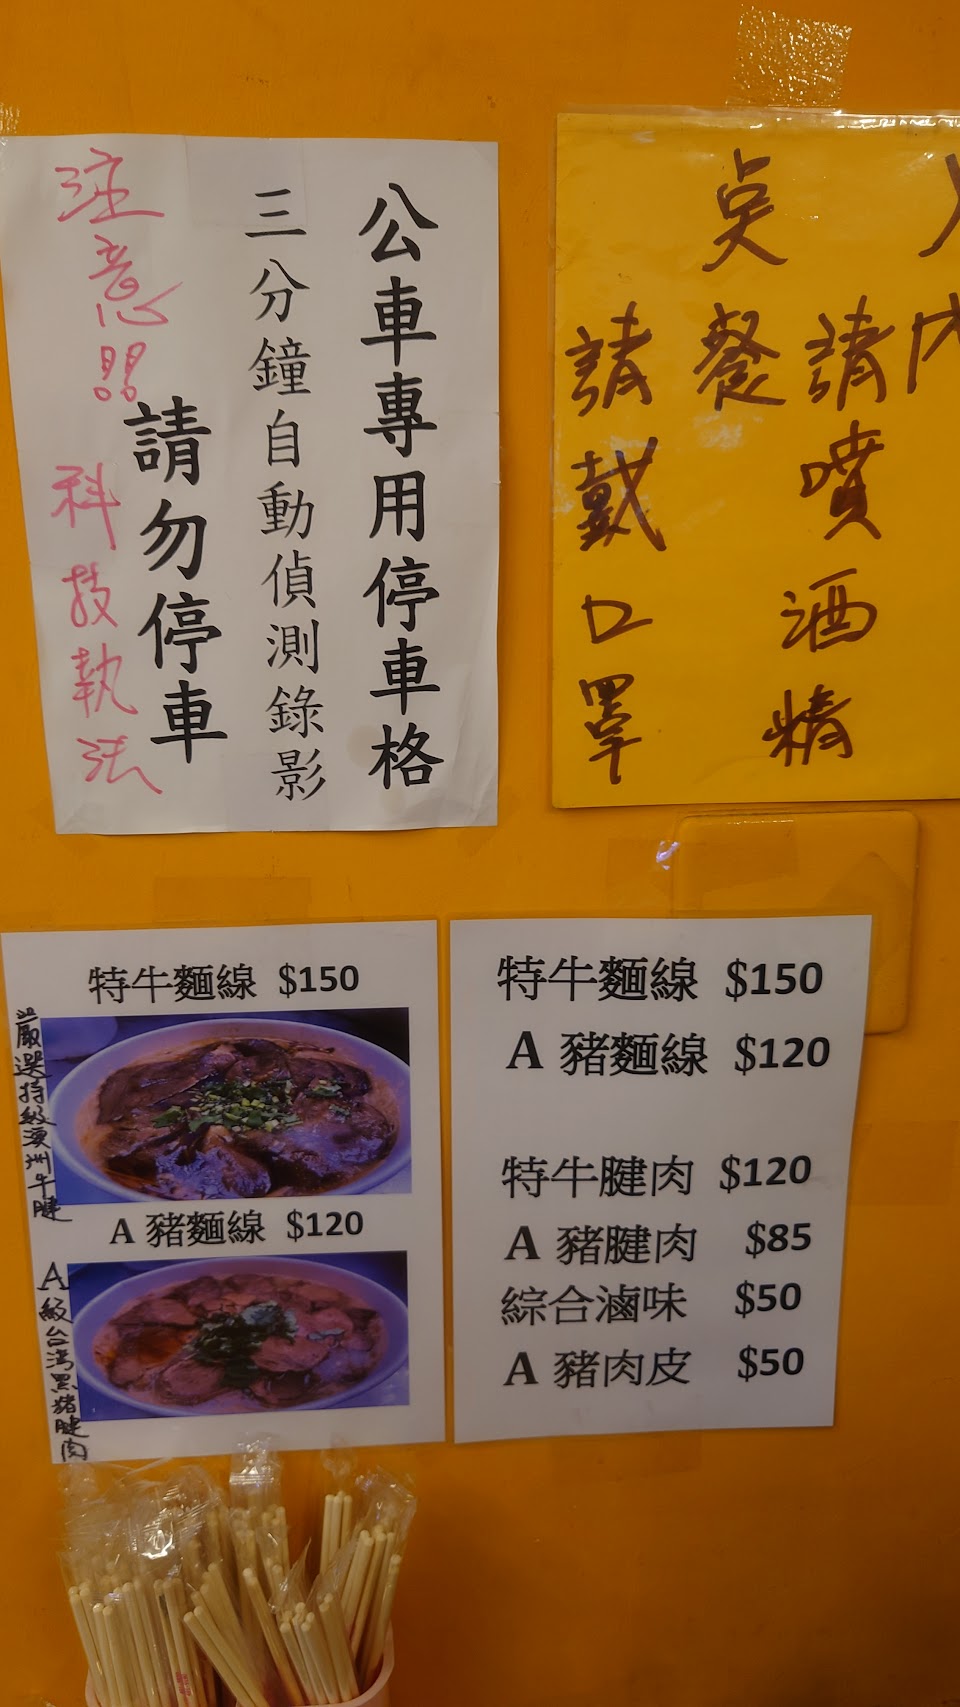 公車專用停車格
三分鐘自動偵測錄影
請勿停車
注意!!
科技執法
內
請噴酒精
點餐
請戴口罩
特牛麵線 $150
嚴選特級澳洲牛腱
A 豬麵線 $120
A級台灣黑豬腱肉
特牛麵線 $150
A 豬麵線 $120
特牛腱肉 $120
A 豬腱肉 $85
綜合滷味 $50
A 豬肉皮 $50